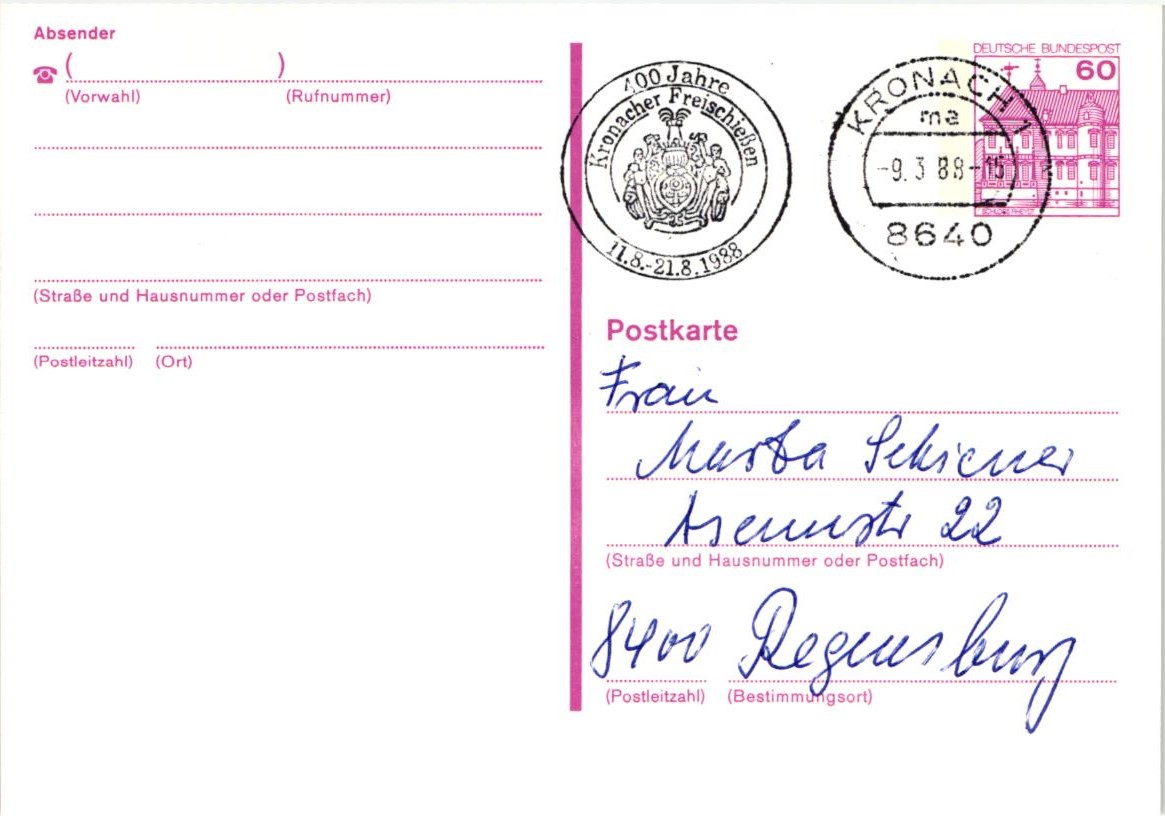 Absender
( )
(Vorwahl) (Rufnummer)
(Straße und Hausnummer oder Postfach)
(Postleitzahl) (Ort)
400 Jahre
Kronacher Freischießen
11.8.-21.8.1988
KRONACH 1
ma
-9. 3 88-15
8640
DEUTSCHE BUNDESPOST
60
SCHLOSS RHEYDT
Postkarte
Frau
Marta Schiener
22
(Straße und Hausnummer oder Postfach)
8400 Regensburg
(Postleitzahl) (Bestimmungsort)